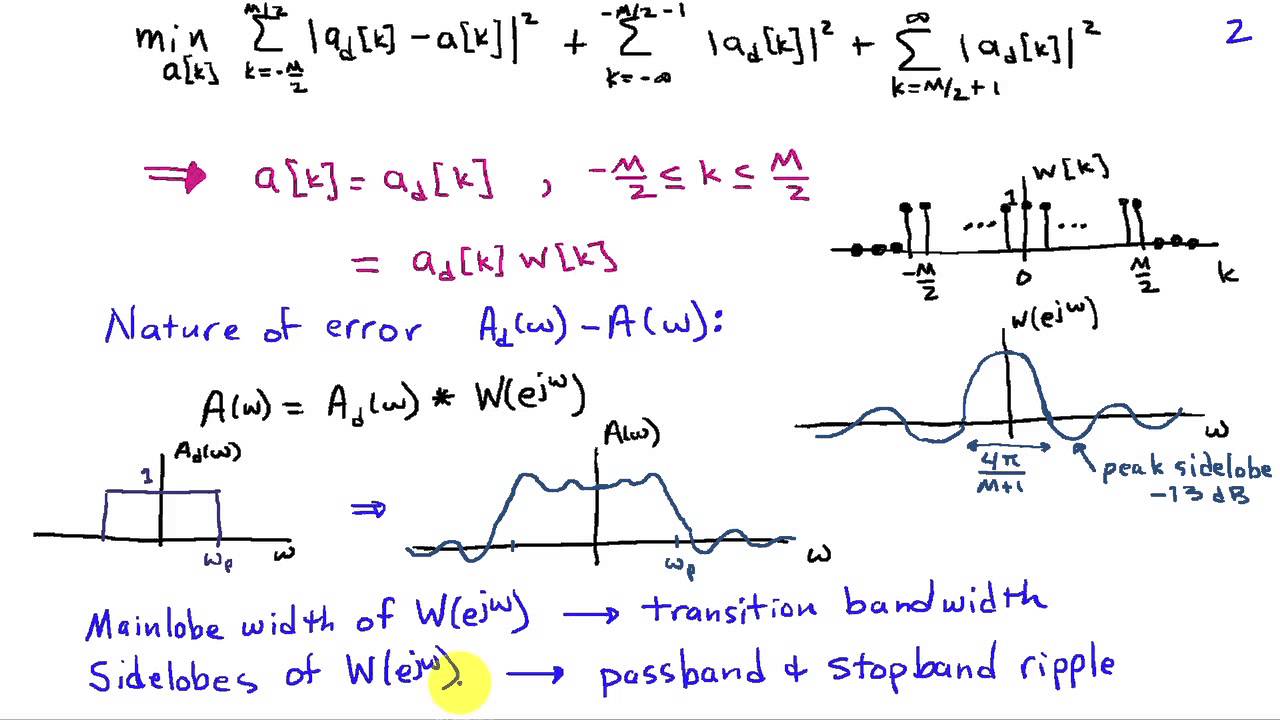 min a[k] Σ_{k=-M/2}^{M/2} |a_d[k] - a[k]|² + Σ_{k=-∞}^{-M/2-1} |a_d[k]|² + Σ_{k=M/2+1}^{∞} |a_d[k]|²
2
⇒ a[k] = a_d[k] , -M/2 ≤ k ≤ M/2
= a_d[k] w[k]
w[k]
1
... ...
-M/2 0 M/2 k
Nature of error A_d(ω) - A(ω):
W(e^{jω})
A(ω) = A_d(ω) * W(e^{jω})
ω
4π/(M+1)
peak sidelobe
-13 dB
A_d(ω)
1
ω_p ω
⇒
A(ω)
ω_p ω
Mainlobe width of W(e^{jω}) → transition bandwidth
Sidelobes of W(e^{jω}) → passband & stopband ripple